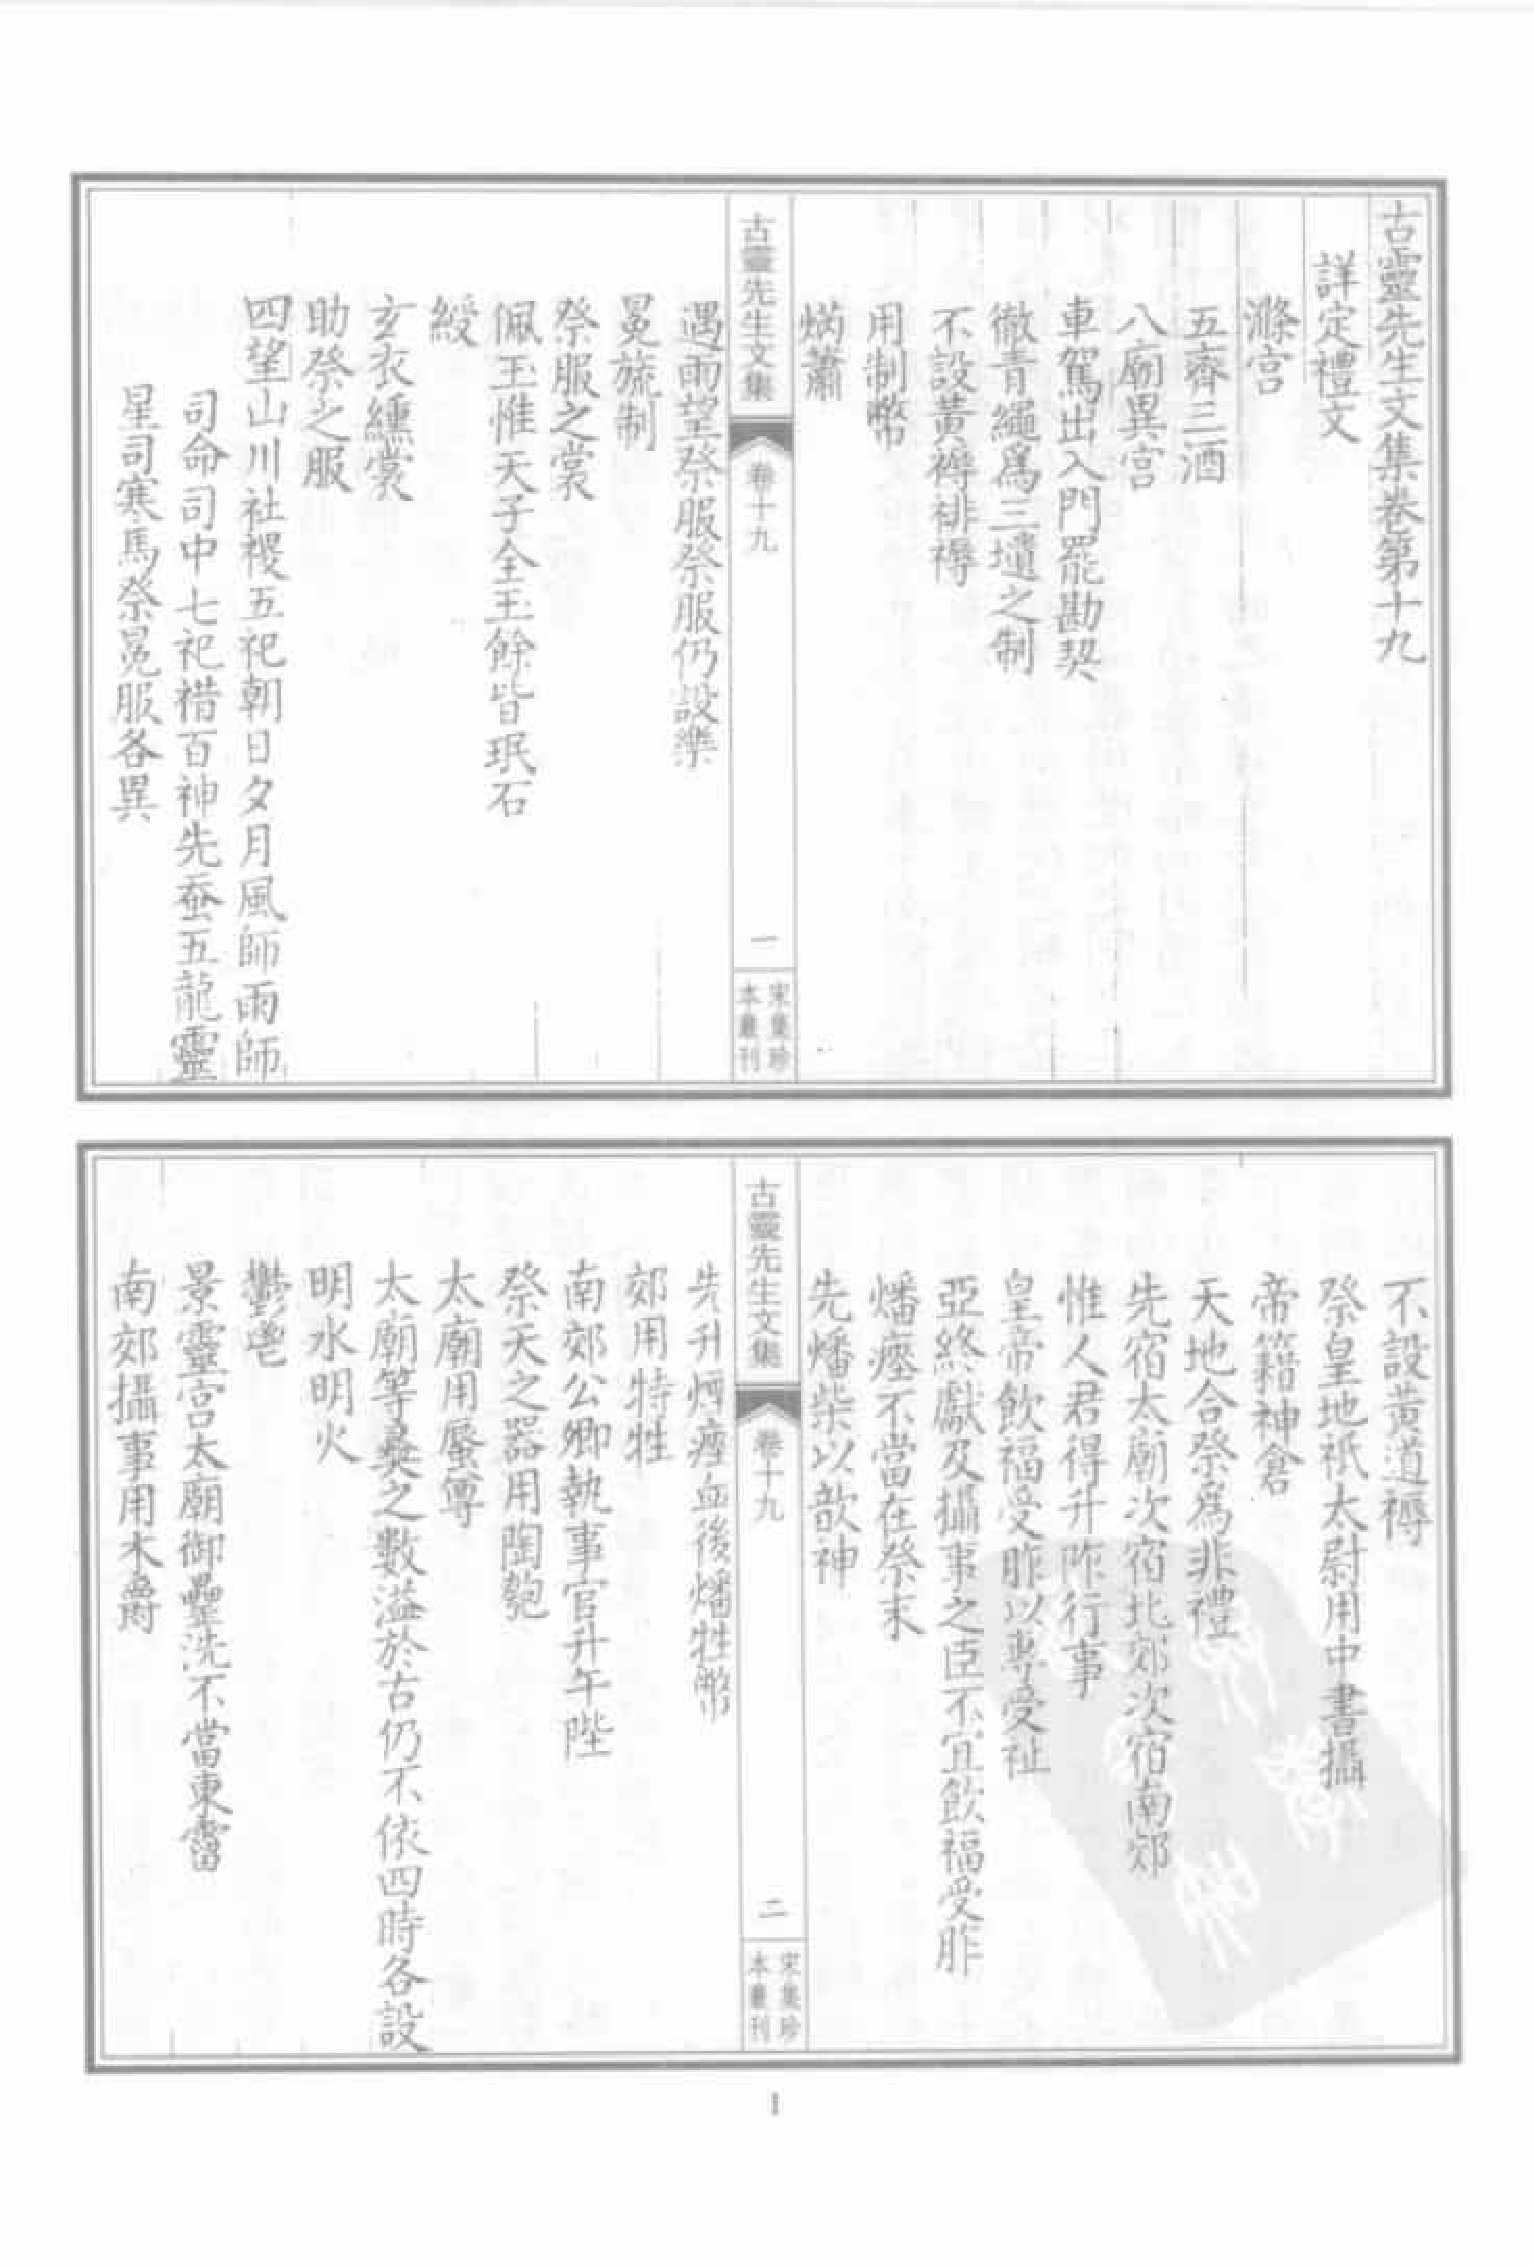 古靈先生文集卷第十九
詳定禮文
滌宮
五齊三酒
八廟異宮
車駕出入門罷勘契
徹青繩爲三壝之制
不設黃褥緋褥
用制幣
焫蕭
古靈先生文集
卷十九
一
宋集珍
本叢刊
遇雨望祭服祭服仍設樂
冕旒制
祭服之裳
佩玉惟天子全玉餘皆珉石
綬
玄衣纁裳
助祭之服
四望山川社稷五祀朝日夕月風師雨師
司命司中七祀禧百神先蚕五龍靈
星司寒馬祭冕服各異
不設黃道褥
祭皇地祇太尉用中書攝
帝籍神倉
天地合祭爲非禮
先宿太廟次宿北郊次宿南郊
惟人君得升阼行事
皇帝飲福受胙以專受祉
亞終獻及攝事之臣不宜飲福受胙
燔瘞不當在祭末
先燔柴以歆神
古靈先生文集
卷十九
二
宋集珍
本叢刊
先升煙瘞血後燔牲幣
郊用特牲
南郊公卿執事官升午陛
祭天之器用陶匏
太廟用蜃尊
太廟等彝之數溢於古仍不依四時各設
明水明火
鬱鬯
景靈宮太廟御罍洗不當東霤
南郊攝事用木爵
1